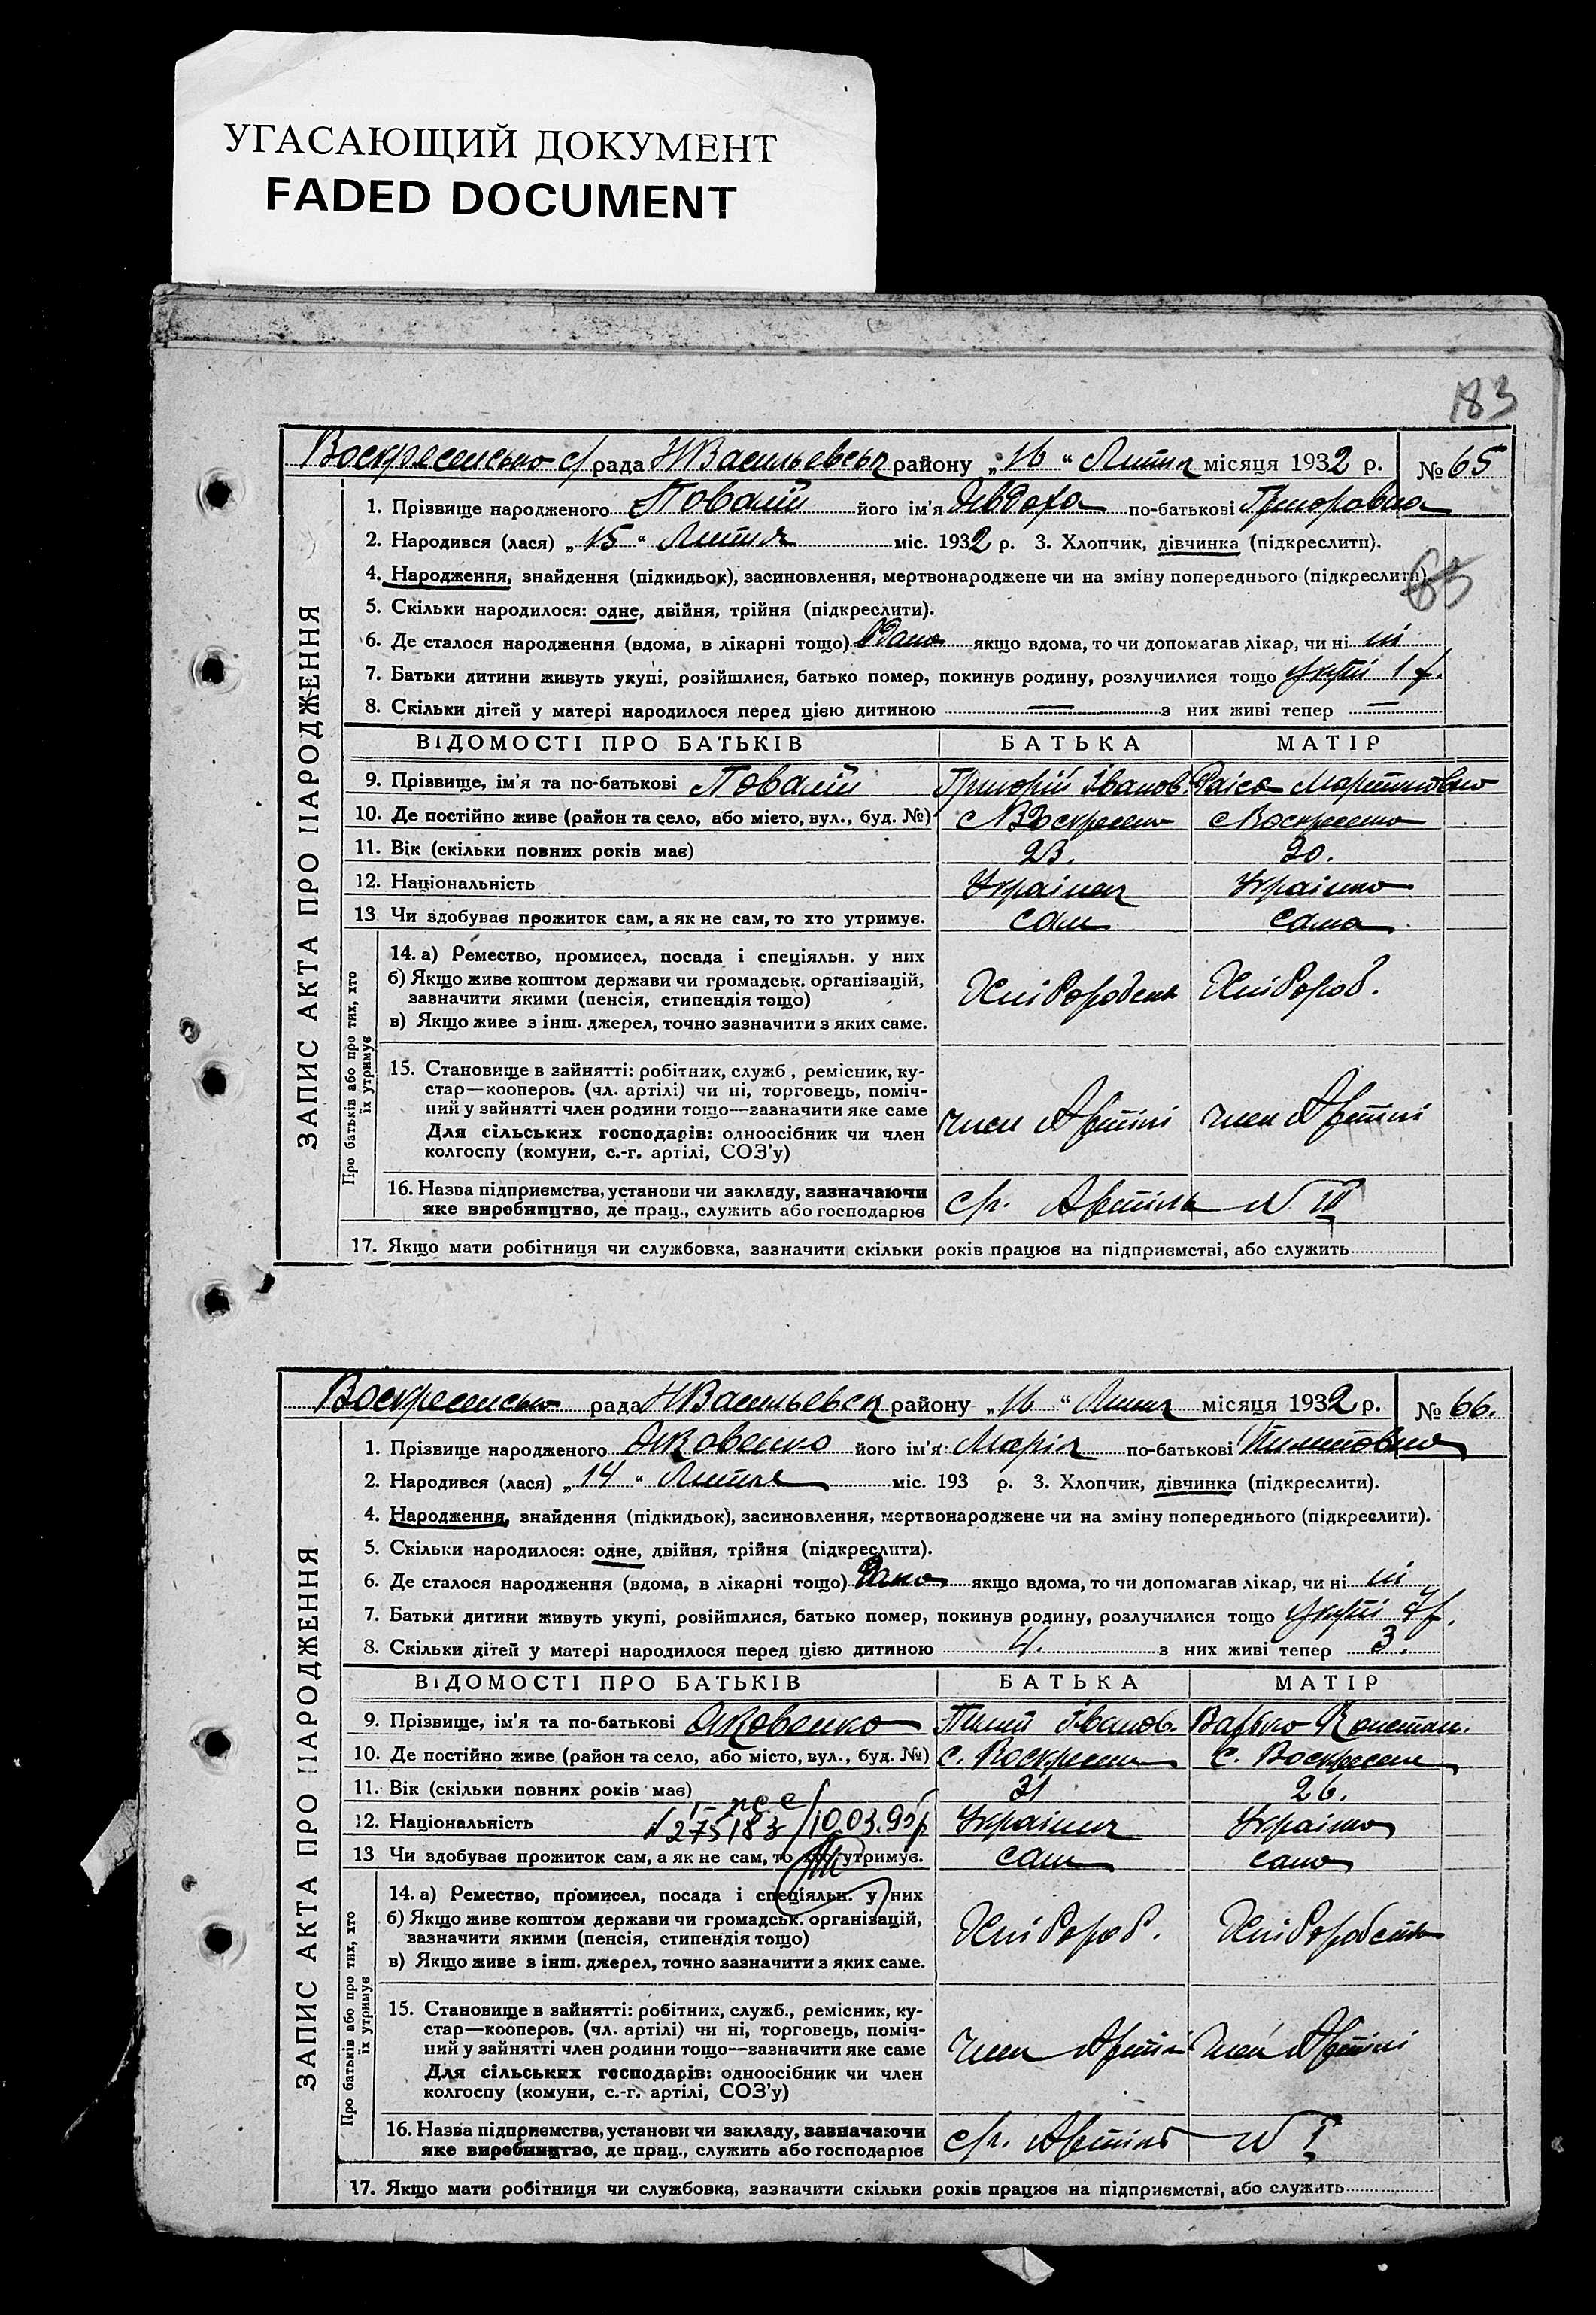 УГАСАЮЩИЙ ДОКУМЕНТ
FADED DOCUMENT
183
Воскресенсько с/ рада НВасильевськ району „16“ Лютня місяця 1932 р. № 65
ЗАПИС АКТА ПРО НАРОДЖЕННЯ
1. Прізвище народженого Повалій його ім'я Явдоха по-батькові Григоровна
2. Народився (лася) „15“ Лютня міс. 1932 р. 3. Хлопчик, дівчинка (підкреслити).
4. Народження, знайдення (підкидьок), засиновлення, мертвонароджене чи на зміну попереднього (підкреслити).
65
5. Скільки народилося: одне, двійня, трійня (підкреслити).
6. Де сталося народження (вдома, в лікарні тощо) Вдома якщо вдома, то чи допомагав лікар, чи ні ні
7. Батьки дитини живуть укупі, розійшлися, батько помер, покинув родину, розлучилися тощо укупі 1 р.
8. Скільки дітей у матері народилося перед цією дитиною — з них живі тепер —
ВІДОМОСТІ ПРО БАТЬКІВ БАТЬКА МАТІР
9. Прізвище, ім'я та по-батькові Повалій Григорій Іванов. Раіса
10. Де постійно живе (район та село, або місто, вул., буд. №) с Воскресено с Воскресено
11. Вік (скільки повних років має) 23. 20.
12. Національність Украінец Украінко
13 Чи здобував прожиток сам, а як не сам, то хто утримує. сам сама
Про батьків або про тих, хто їх утримує
14. а) Ремество, промисел, посада і спеціяльн. у них
б) Якщо живе коштом держави чи громадськ. організацій,
зазначити якими (пенсія, стипендія тощо)
Хліборобств Хлібороб.
в) Якщо живе з інш. джерел, точно зазначити з яких саме.
15. Становище в зайнятті: робітник, служб., ремісник, ку-
стар—кооперов. (чл. артілі) чи ні, торговець, поміч-
ний у зайнятті член родини тощо—зазначити яке саме
Для сільських господарів: одноосібник чи член
колгоспу (комуни, с.-г. артілі, СОЗ'у)
член Артілі член Артілі
16. Назва підприємства, установи чи закладу, зазначаючи
яке виробництво, де прац., служить або господарює
с/г. Артіль N III
17. Якщо мати робітниця чи службовка, зазначити скільки років працює на підприємстві, або служить
Воскресенсько рада НВасильевск району „16“ Лютня місяця 1932 р. № 66.
ЗАПИС АКТА ПРО НАРОДЖЕННЯ
1. Прізвище народженого Яковенко його ім'я Марія по-батькові
2. Народився (лася) „14“ Лютня міс. 193 р. 3. Хлопчик, дівчинка (підкреслити).
4. Народження, знайдення (підкидьок), засиновлення, мертвонароджене чи на зміну попереднього (підкреслити).
5. Скільки народилося: одне, двійня, трійня (підкреслити).
6. Де сталося народження (вдома, в лікарні тощо) Дома якщо вдома, то чи допомагав лікар, чи ні ні
7. Батьки дитини живуть укупі, розійшлися, батько помер, покинув родину, розлучилися тощо укупі 7 р.
8. Скільки дітей у матері народилося перед цією дитиною 4. з них живі тепер 3.
ВІДОМОСТІ ПРО БАТЬКІВ БАТЬКА МАТІР
9. Прізвище, ім'я та по-батькові Яковенко Іванов. Варько Констан.
10. Де постійно живе (район та село, або місто, вул., буд. №) с. Воскресен с. Воскресене
11. Вік (скільки повних років має) 31 26.
12. Національність N 275183/10.03.95р Украінец Украінко
13 Чи здобував прожиток сам, а як не сам, то хто утримує. сам сама
Про батьків або про тих, хто їх утримує
14. а) Ремество, промисел, посада і спеціяльн. у них
б) Якщо живе коштом держави чи громадськ. організацій,
зазначити якими (пенсія, стипендія тощо)
Хлібороб. Хліборобств
в) Якщо живе в інш. джерел, точно зазначити з яких саме.
15. Становище в зайнятті: робітник, служб., ремісник, ку-
стар—кооперов. (чл. артілі) чи ні, торговець, поміч-
ний у зайнятті член родини тощо—зазначити яке саме
Для сільських господарів: одноосібник чи член
колгоспу (комуни, с.-г. артілі, СОЗ'у)
член Артілі член Артілі
16. Назва підприємства, установи чи закладу, зазначаючи
яке виробництво, де прац., служить або господарює
с/г. Артіль N I
17. Якщо мати робітниця чи службовка, зазначити скільки років працює на підприємстві, або служить